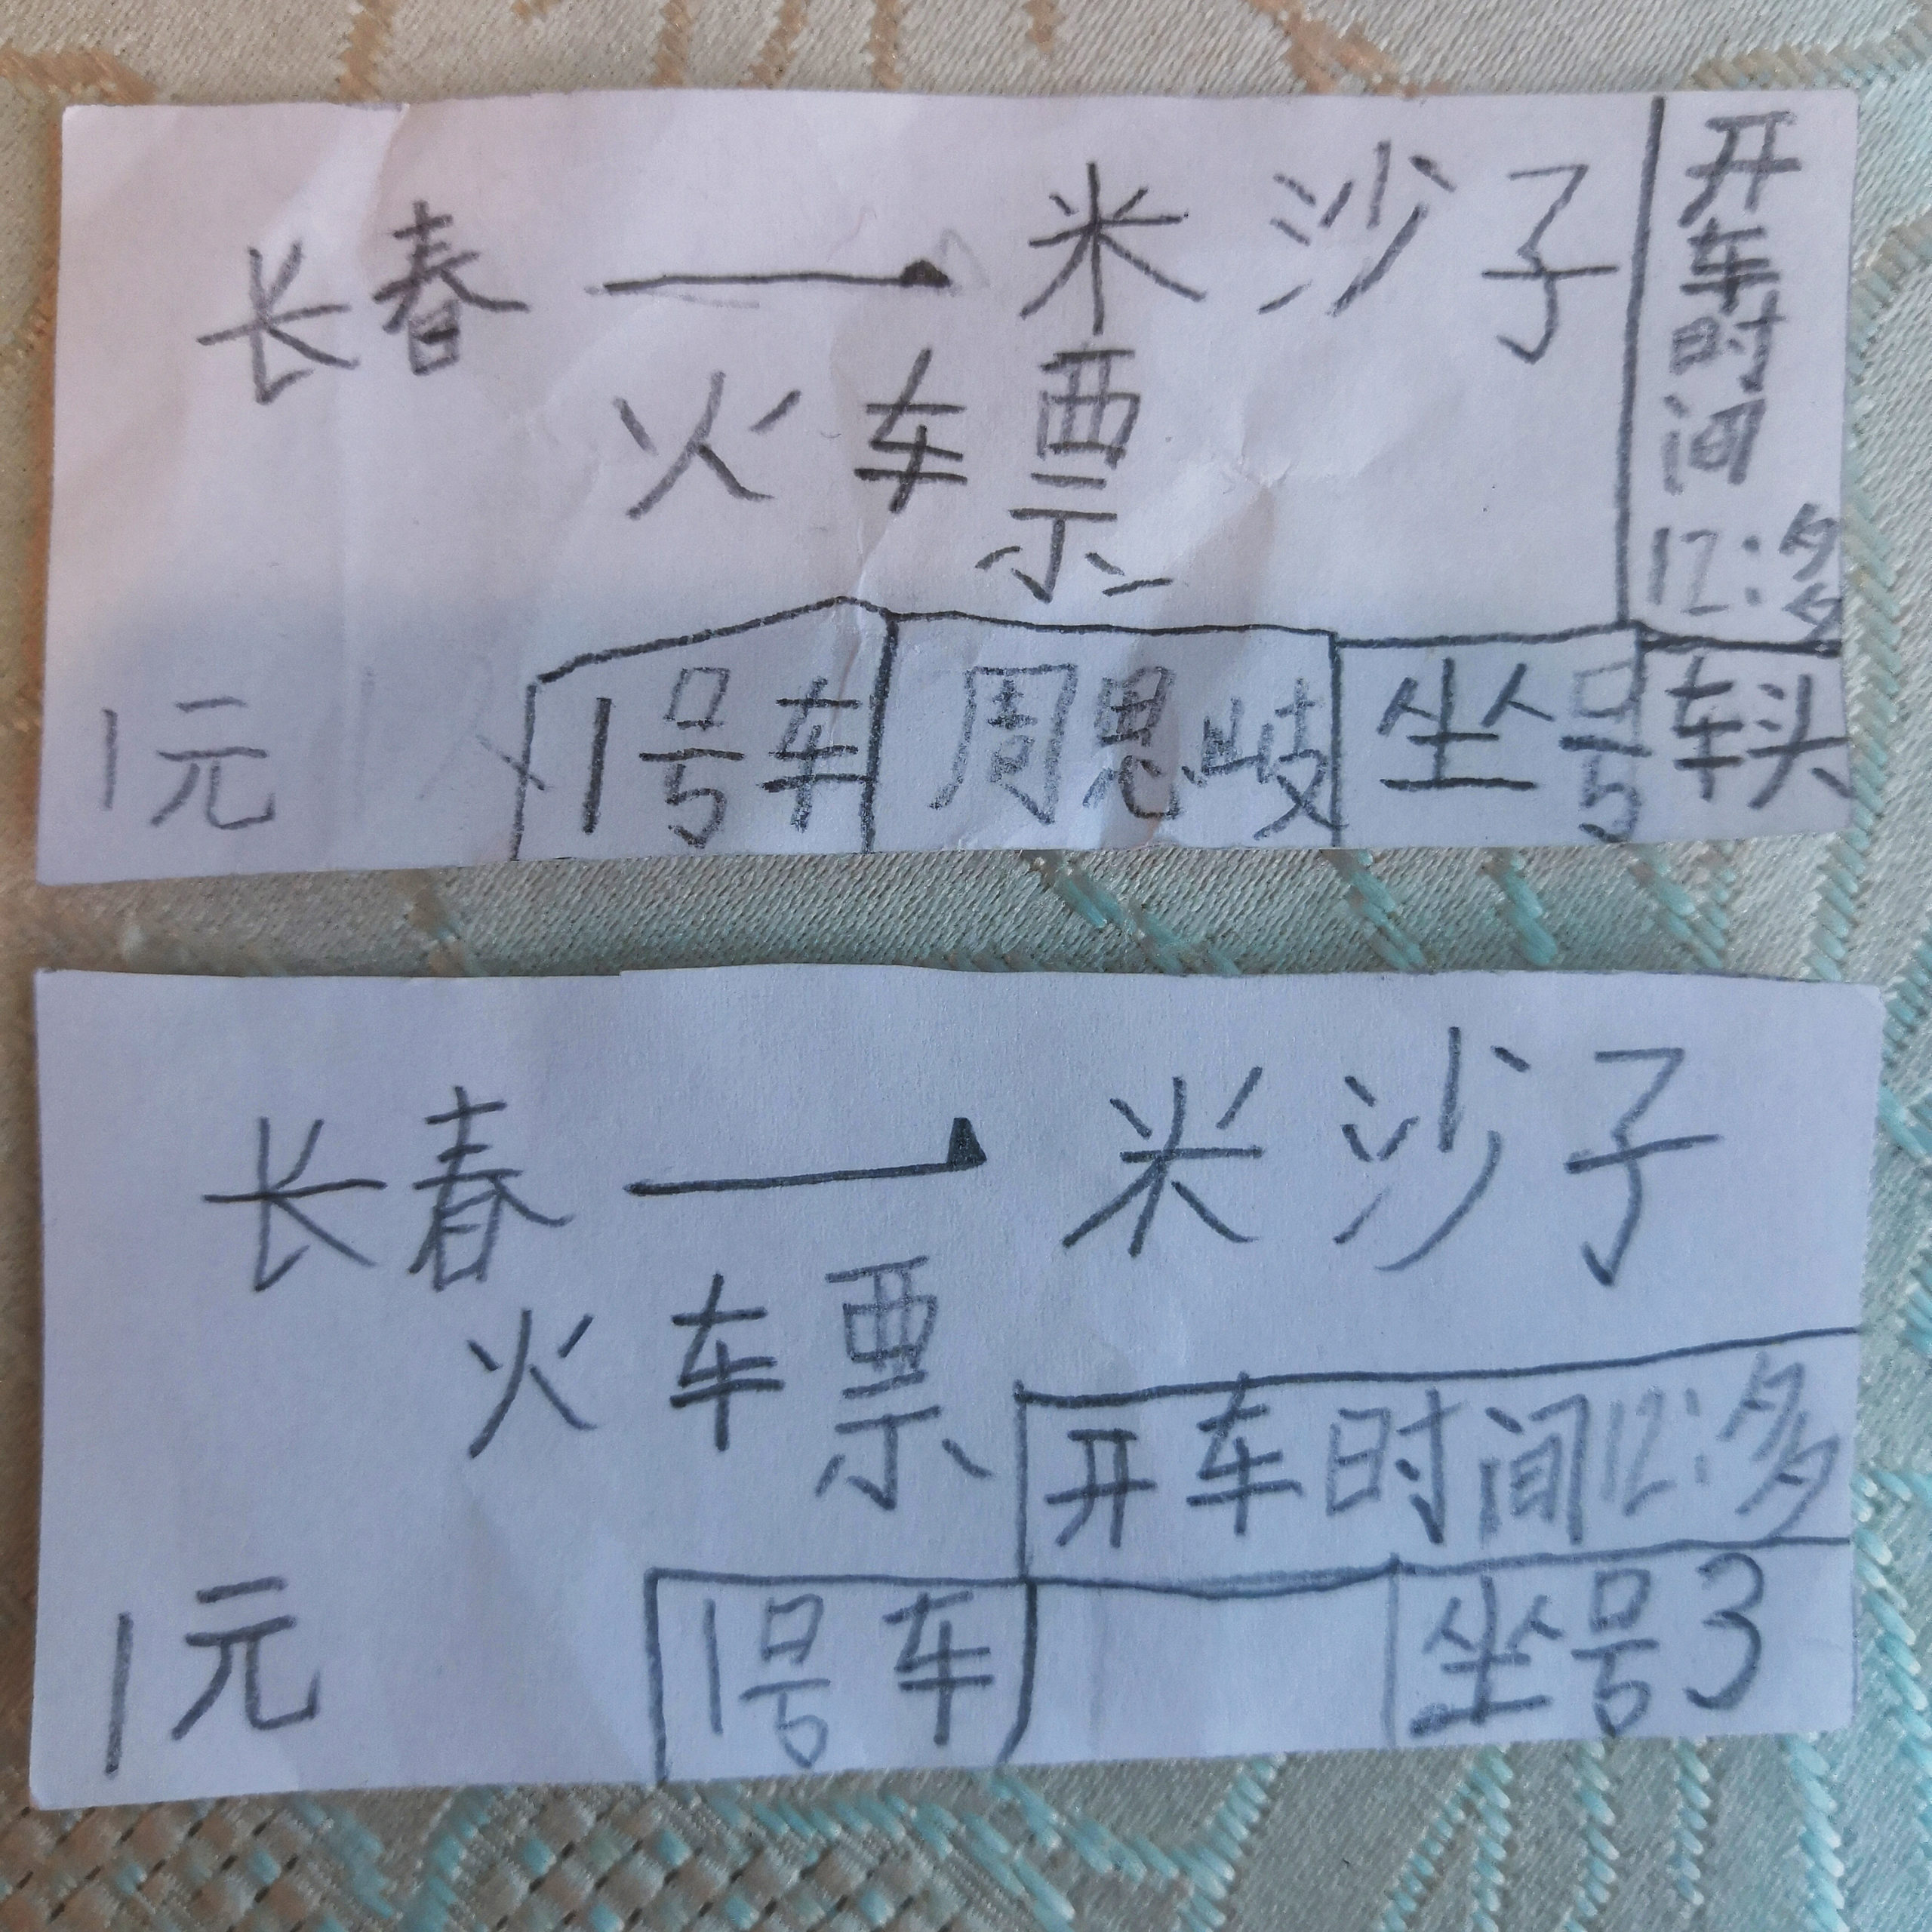 长春 → 米沙子
火车票
开车时间
12:多
1元
1号车
周恩岐
坐号
车头
长春 → 米沙子
火车票
开车时间12:多
1元
1号车
坐号3